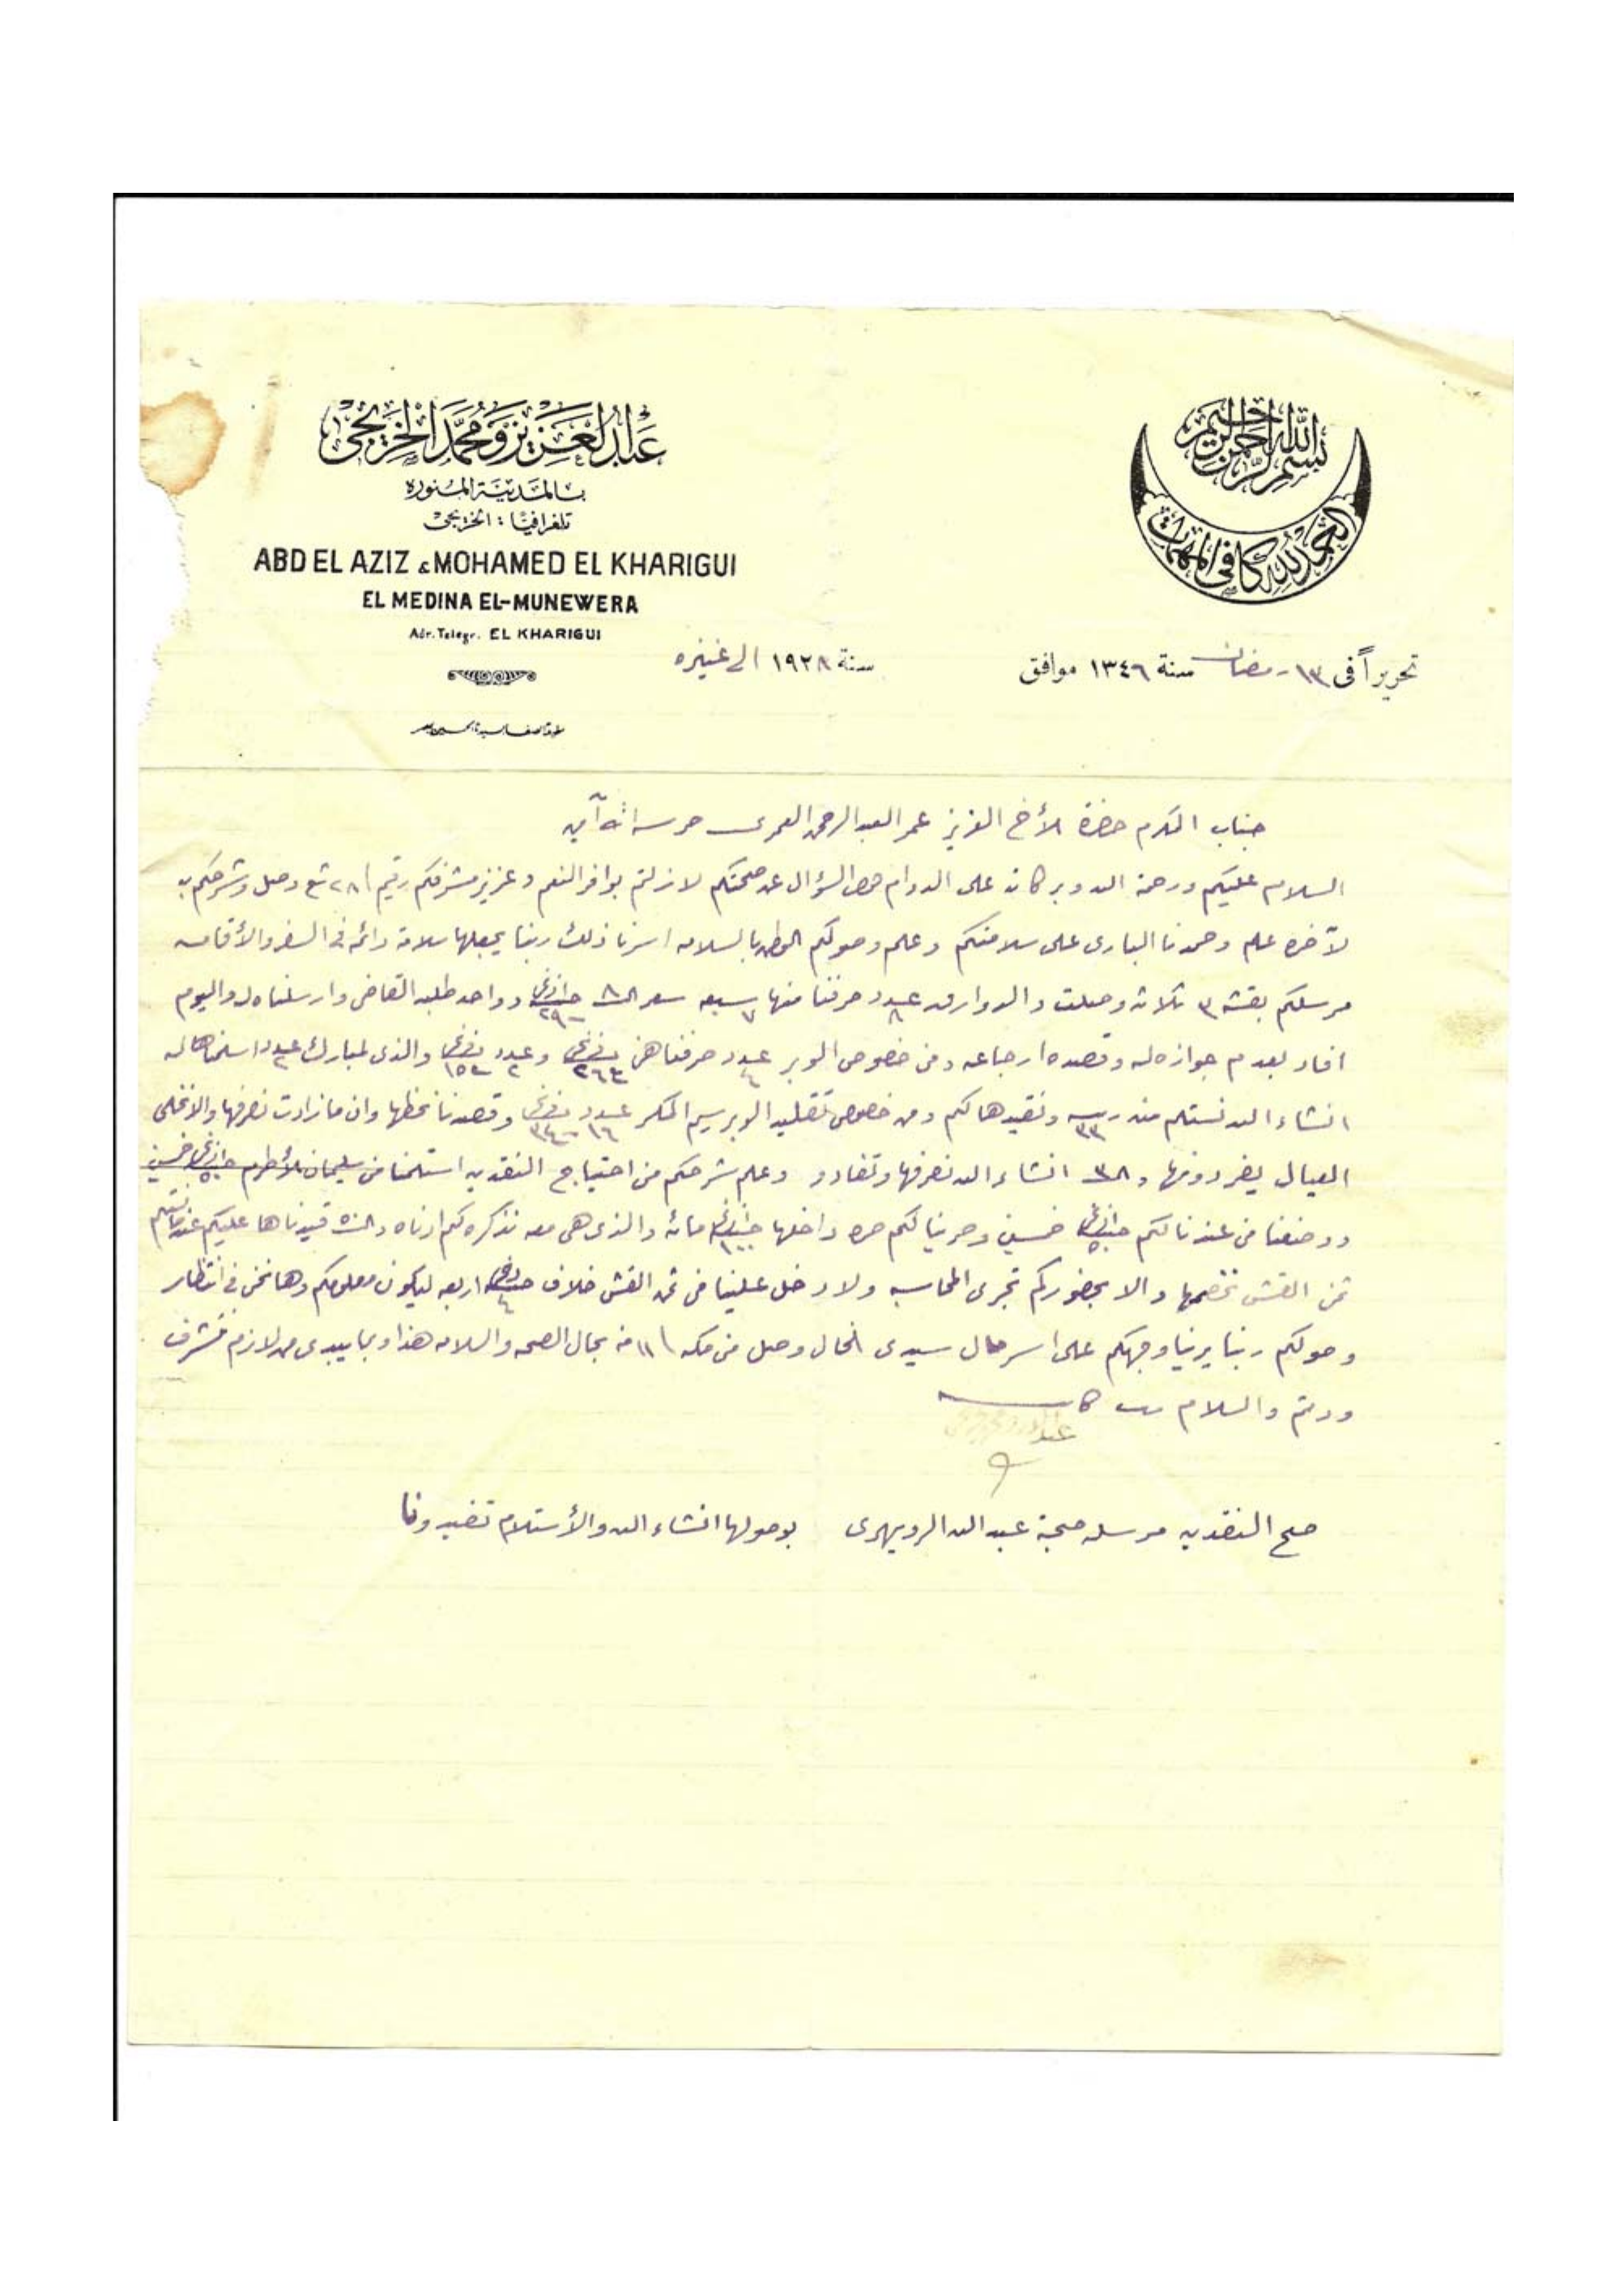 بسم الله الرحمن الرحيم
الحمد لله كافي المهمات
عبد العزيز ومحمد الخريجي
بالمدينة المنورة
تلغرافيًا: الخريجي
ABD EL AZIZ & MOHAMED EL KHARIGUI
EL MEDINA EL-MUNEWERA
Adr. Telegr. EL KHARIGUI
تحريراً في ١٣ رمضان سنة ١٣٤٦ موافق سنة ١٩٢٨ الى عنيزه
جناب المكرم حضرة الأخ العزيز عمر العبد الرحمن العمري حرسه الله آمين
السلام عليكم ورحمة الله وبركاته على الدوام السؤال عن صحتكم لا زلتم بوافر النعم وعزيز مشرفكم رقيم ٢٨ وصل وشرحكم به
لآخره علم وحمدنا الباري على سلامتكم وعلم وصولكم الوطن بالسلامه اسرنا ذلك ربنا يجعلها سلامة دائمه في السفر والأقامه
مرسلكم بقشة ٣ ثلاثة وصلت والدوارق عدد ٨ صرفنا منها سبعه ٧ سعر ٢٩ وواحد طلبه القاضي وارسلناه له واليوم
افاد بعدم جوازه له وقصده ارجاعه ومن خصوص الوبر عدد ٤ صرفناهن ٢٦٤ وعدد ٢ ١٥٤ والذي لمبارك عدد ٢ اسلمناها له
انشاء الله نستلم منه ٣٣ ونقيدها لكم ومن خصوص تقليد الوبر عدد ١٦ وقصدنا نحظها وان ما زادت نصرفها والا نخلي
العيال يفردونها انشاء الله نصرفها وتفادو وعلم شرحكم من احتياج النقديه استلمنا من سليمان الأطرم خمسين
ودفعنا من عندنا لكم خمسين وصرينا لكم صره داخلها ١٠٠ مائة والذي هي معه نذكره لكم ادناه قيدناها عليكم عند
ثمن القش نخصمها والا بحضوركم تجري المحاسبه ولا دخل علينا من ثمن القش خلاف ٤ اربعه ليكون معلومكم وها نحن في انتظار
وصولكم ربنا يرينا وجهكم على اسر حال سيدي الخال وصل من مكه ١١ منه بحال الصحه والسلامه هذا وبما يبدى من لازم نتشرف
ودمتم والسلام
صح النقديه مرسله صحبة عبد الله الرويهري بوصولها انشاء الله والأستلام تفيدونا